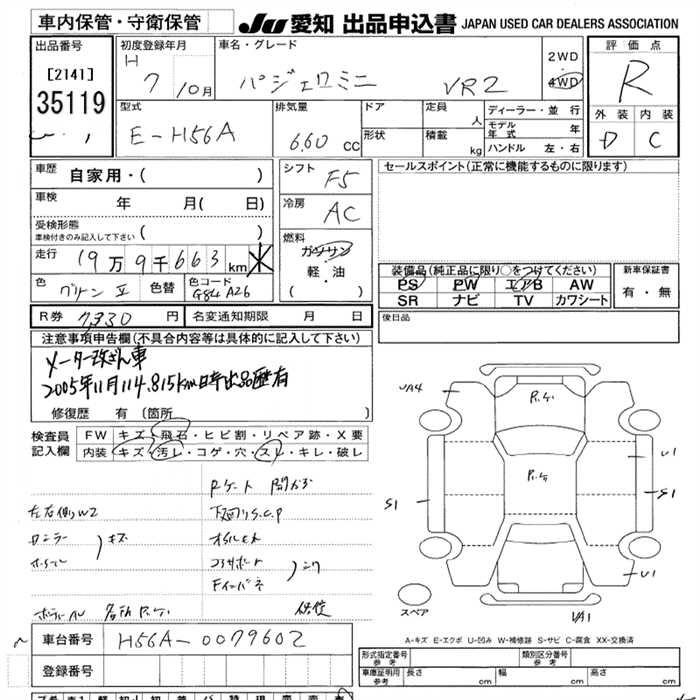 車内保管・守衛保管
JU 愛知 出品申込書 JAPAN USED CAR DEALERS ASSOCIATION
出品番号
[2141]
35119
初度登録年月
H 7 10月
車名・グレード
パジェロミニ VR2
2WD
4WD
評価点
R
外装 内装
D C
型式
E-H56A
排気量
660 cc
ドア
形状
定員 人
積載 kg
ディーラー・並行
モデル年式 年
ハンドル 左・右
車歴
自家用・( )
車検
年 月( 日)
受検形態
車検付きのみ記入して下さい ( )
走行
19万9千663km
色
グリーンⅡ
色替
色コード
G84 A26
シフト
F5
冷房
AC
燃料
ガソリン
軽・油
( ・ )
セールスポイント(正常に機能するものに限ります)
装備品(純正品に限り○をつけてください)
PS PW エアB AW
SR ナビ TV カワシート
新車保証書
有・無
後日品
R券 7,330 円
名変通知期限 月 日
注意事項申告欄(不具合内容等は具体的に記入して下さい)
メーター改ざん車
2005年11月114,815km時出品歴有
修復歴 有 (箇所 )
検査員
記入欄
FW キズ・飛石・ヒビ割・リペア跡・X要
内装 キズ・汚レ・コゲ・穴・スレ・キレ・破レ
左右側W2
キズ
下回りS.C.P
コアサポート
車台番号
H56A-0079602
登録番号
P.ケ
P.ケ
UA4
U1
S1
S1
U1
UA1
スペア
A-キズ E-エクボ U-凹み W-補修跡 S-サビ C-腐食 XX-交換済
形式指定番号
参考
類別区分番号
参考
車庫証明用
参考
長さ 幅 高さ